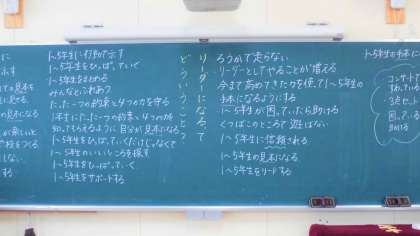 1~5年生に行動で示す
1~5年生をひっぱっていく
1~5年生をまとめる
みんなとふれあう
たった一つの約束と4つの力を守る
1年生にたった一つの約束、4つの力を
知ってもらえるように自分が見本になる
1~5年生をひっぱっていくだけじゃなくて
1~5年生のいいところを探す
1~5年生をひっぱっていく
1~5年生をサポートする
リーダーになるって
どういうこと?
ろうかで走らない
リーダーとしてやることが増える
今まで高めてきた力を使って1~5年生の
手本になるようにする
1~5年生が困っていたら助ける
くつばこのところで遊ばない
1~5年生に信頼される
1~5年生の見本になる
1~5年生をリードする
1~5年生の手本に
困っている
助ける